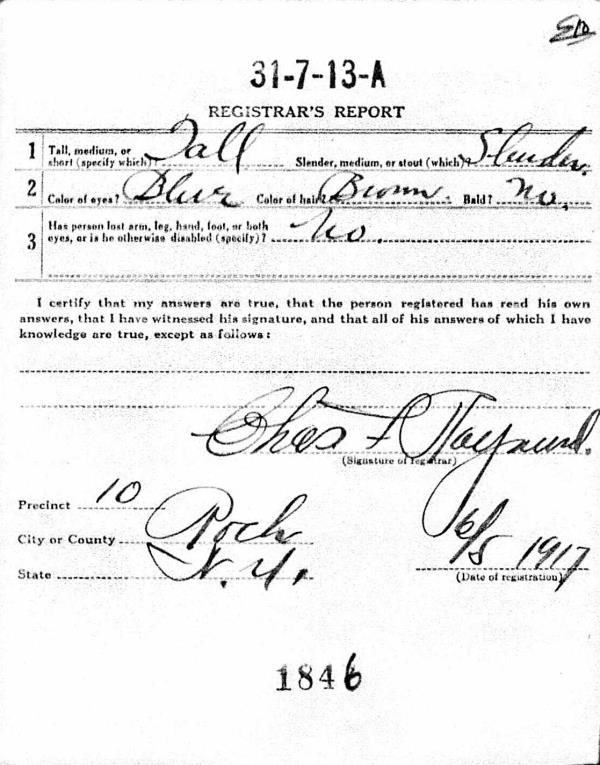 31-7-13-A
REGISTRAR'S REPORT
1 Tall, medium, or short (specify which)? Tall Slender, medium, or stout (which)? Slender.
2 Color of eyes? Blue Color of hair? Brown Bald? No.
3 Has person lost arm, leg, hand, foot, or both
eyes, or is he otherwise disabled (specify)? No.
I certify that my answers are true, that the person registered has read his own
answers, that I have witnessed his signature, and that all of his answers of which I have
knowledge are true, except as follows:
Chas F
(Signature of registrar)
Precinct 10
City or County Roch
6/5 1917
State N.Y.
(Date of registration)
1846